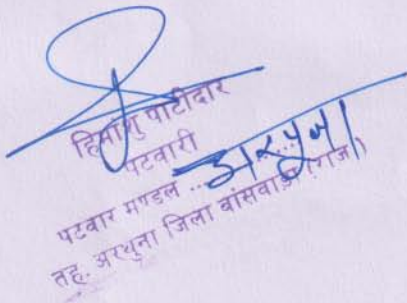 हिमांशु पाटीदार
पटवारी
पटवार मण्डल ... अरथुना
तह. अरथुना जिला बांसवाड़ा (राज.)